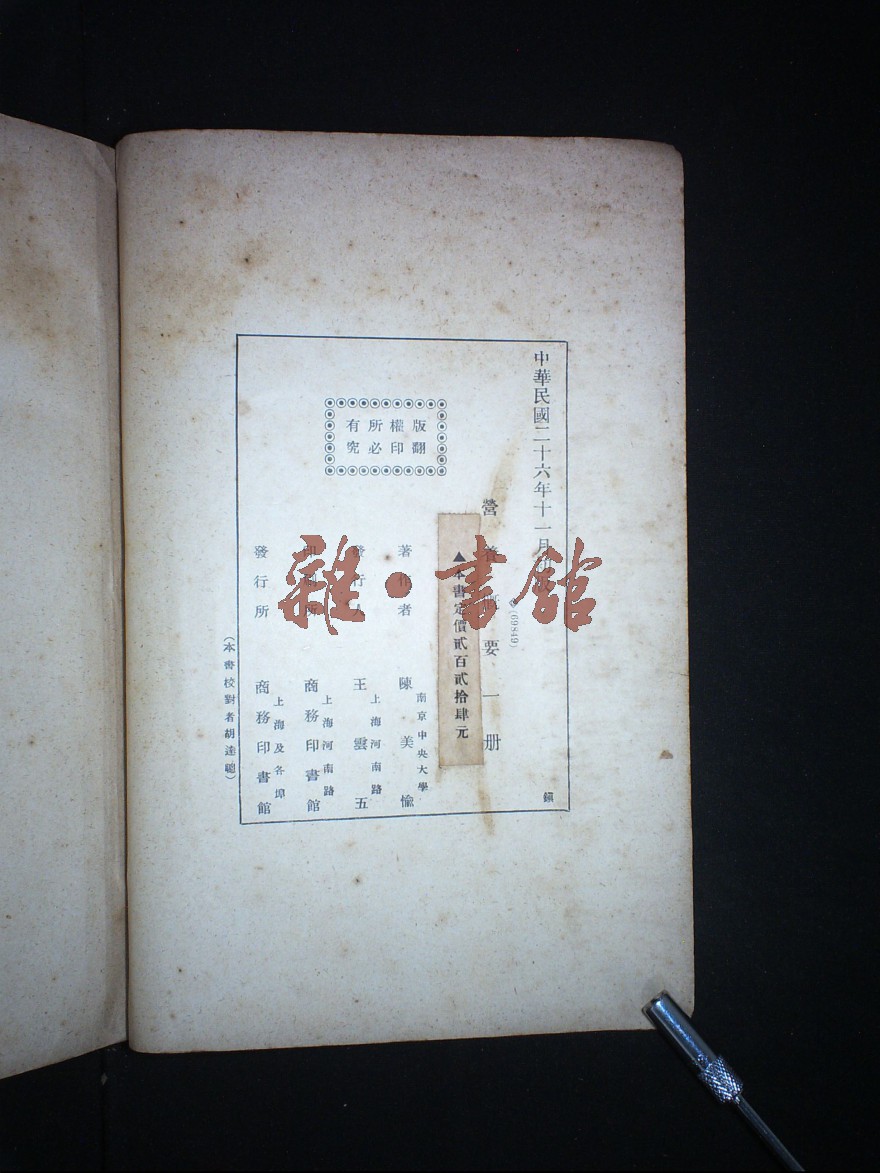 中華民國二十六年十一月初版
(69849)
營養概要一册
▲本書定價貳百貳拾肆元
版權所有
翻印必究
著作者 陳美愉
南京中央大學
發行人 王雲五
上海河南路
印刷所 商務印書館
上海河南路
發行所 商務印書館
上海及各埠
(本書校對者胡達聰)
鎭
雜·書館